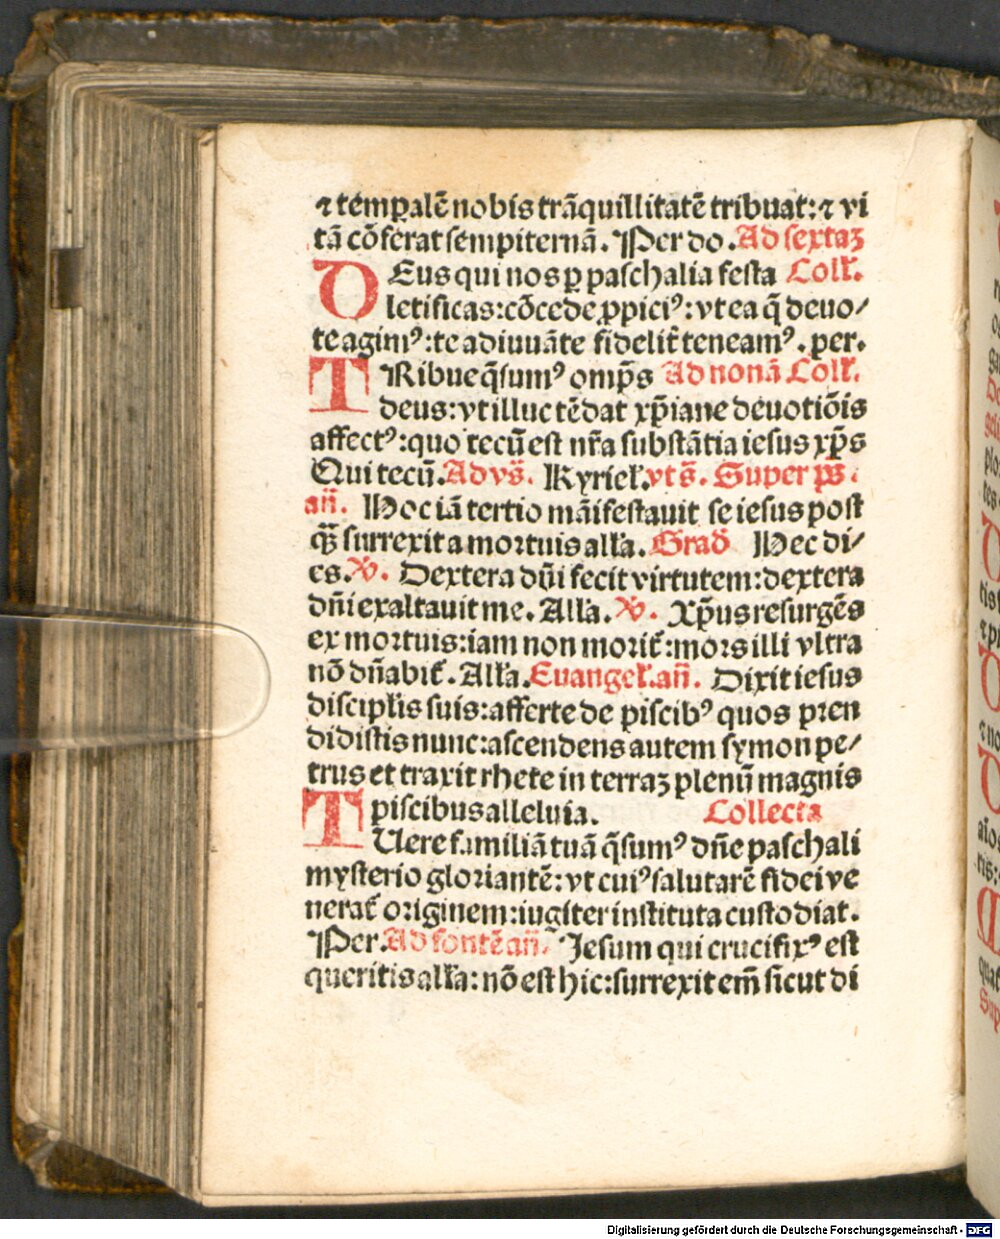 ⁊ tēꝑalē nobis trāquillitatē tribuat: ⁊ vi
tā cōferat sempiternā. Per do. Ad sextaꝫ
DEus qui nos ꝑ paschalia festa Coll̄.
letificas: cōcede ꝓpiciꝰ: vt ea q̄ deuo/
te agimꝰ: te adiuuāte fidelit̄ teneamꝰ. per.
TRibue q̄sumꝰ omp̄s Ad nonā Coll̄.
deus: vt illuc tēdat xp̄iane deuotiōis
affectꝰ: quo tecū est nr̄a substātia iesus xp̄s
Qui tecū. Ad vs̄. Kyriel̄. vt s̄. Super ps̄.
an̄. Hoc iā tertio māifestauit se iesus post
qꝫ̄ surrexit a mortuis all̄a. Grad̄ Hec di/
es. ℣. Dextera dn̄i fecit virtutem: dextera
dn̄i exaltauit me. All̄a. ℣. Xp̄us resurgēs
ex mortuis: iam non morit̄: mors illi vltra
nō dn̄abit̄. All̄a. Euangel̄. an̄. Dixit iesus
discipl̄is suis: afferte de piscibꝰ quos pren
didistis nunc: ascendens autem symon pe/
trus et traxit rhete in terraꝫ plenū magnis
piscibus alleluia. Collecta
TUere familiā tuā q̄sumꝰ dn̄e paschali
mysterio gloriantē: vt cuiꝰ salutarē fidei ve
nerat̄ originem: iugiter instituta custodiat.
Per. Ad fontē an̄. Jesum qui crucifixꝰ est
queritis all̄a: nō est hic: surrexit em̄ sicut di
Digitalisierung gefördert durch die Deutsche Forschungsgemeinschaft - DFG